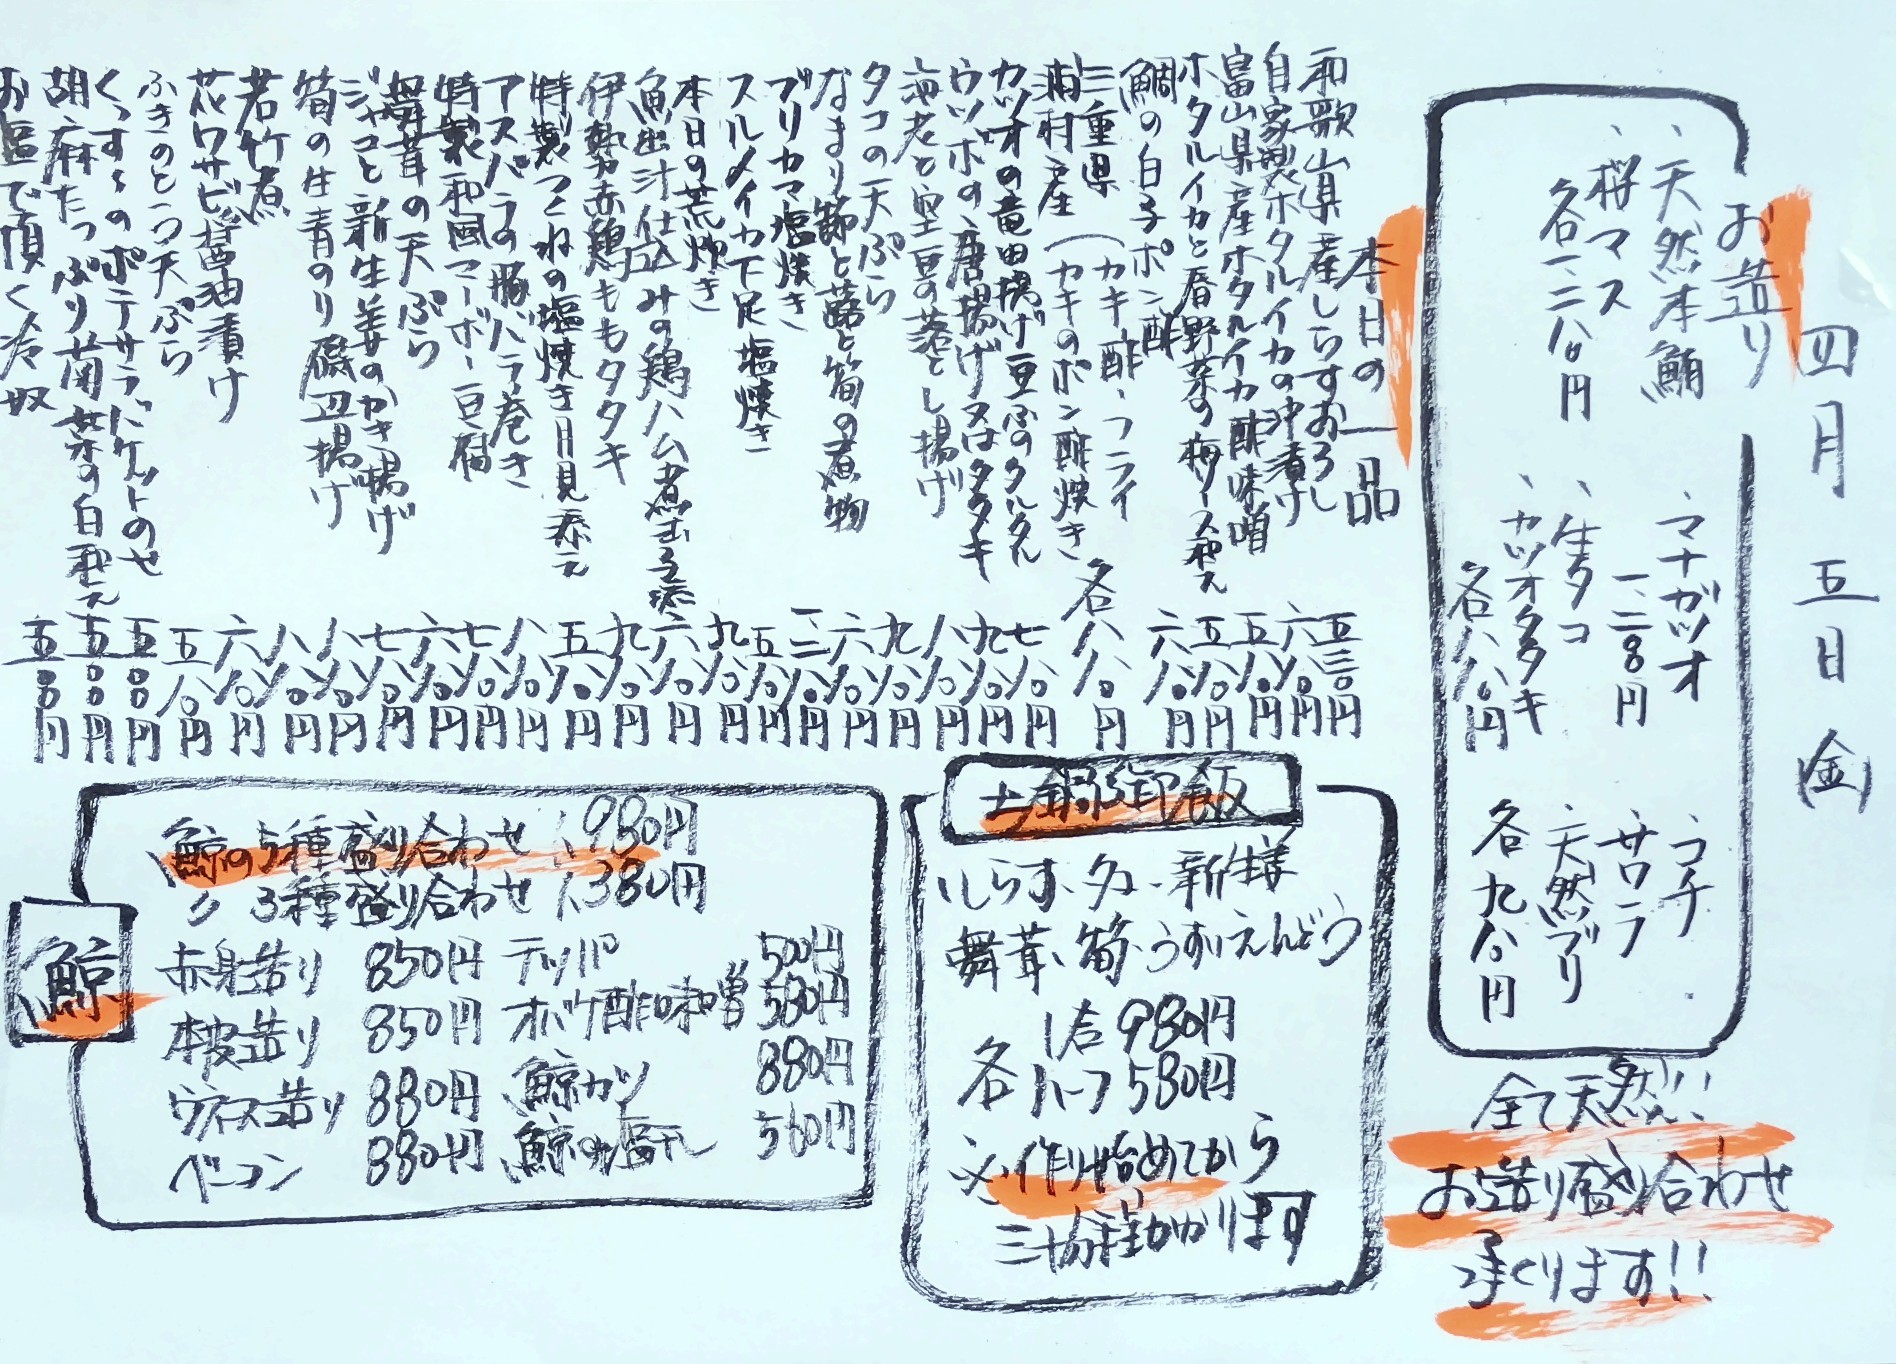 四月五日(金)
お造り
、天然本鮪
、桜マス
各一、二八〇円
、マナガツオ
一、二八〇円
、生タコ
、カツオタタキ
各八八〇円
、コチ
、サワラ
、天然ブリ
各九八〇円
全て天然!!
お造り盛り合わせ
承くります!!
本日の一品
和歌山県産しらすおろし 五三〇円
自家製ホタルイカの沖漬け 六八〇円
富山県産ホタルイカ酢味噌 五八〇円
ホタルイカと春野菜の梅ソース和え 五八〇円
鯛の白子ポン酢 六八〇円
三重県 浦村産(カキ酢、フライ カキのポン酢焼き 各八八〇円
カツオの竜田揚げ豆ふのタルタル 七八〇円
ウツボの唐揚げ又はタタキ 九八〇円
海老と空豆の落とし揚げ 八八〇円
タコの天ぷら 九八〇円
なまり節と蕗と筍の煮物 六八〇円
ブリカマ塩焼き 一、二八〇円
スルメイカ下足塩焼き 五八〇円
本日の荒炊き 九八〇円
魚出汁仕込みの鶏ハム煮玉子添え 六八〇円
伊勢赤鶏ももタタキ 九八〇円
特製つくねの塩焼き月見添え 五八〇円
アスパラの豚バラ巻き 八八〇円
特製和風マーボー豆腐 七八〇円
舞茸の天ぷら 六八〇円
ジャコと新生姜のかき揚げ 七八〇円
筍の生青のり磯辺揚げ 八八〇円
若竹煮 八八〇円
花ワサビ醤油漬け 六八〇円
ふきのとう天ぷら 五八〇円
くんすいのポテサラバケットのせ 五八〇円
胡麻たっぷり菊菜の白和え 五八〇円
お塩で頂く冷奴 五八〇円
土鍋御飯
しらす、タコ、新生姜
舞茸、筍、うすいえんどう
各 1合 980円
ハーフ 580円
※作り始めてから
三十分程かかります
鯨
鯨の5種盛り合わせ 1,980円
〃 3種盛り合わせ 1,380円
赤身造り 850円
本皮造り 850円
ウネス造り 880円
ベーコン 880円
テッパ 500円
オバケ酢味噌 580円
鯨カツ 880円
鯨の塩干し 560円